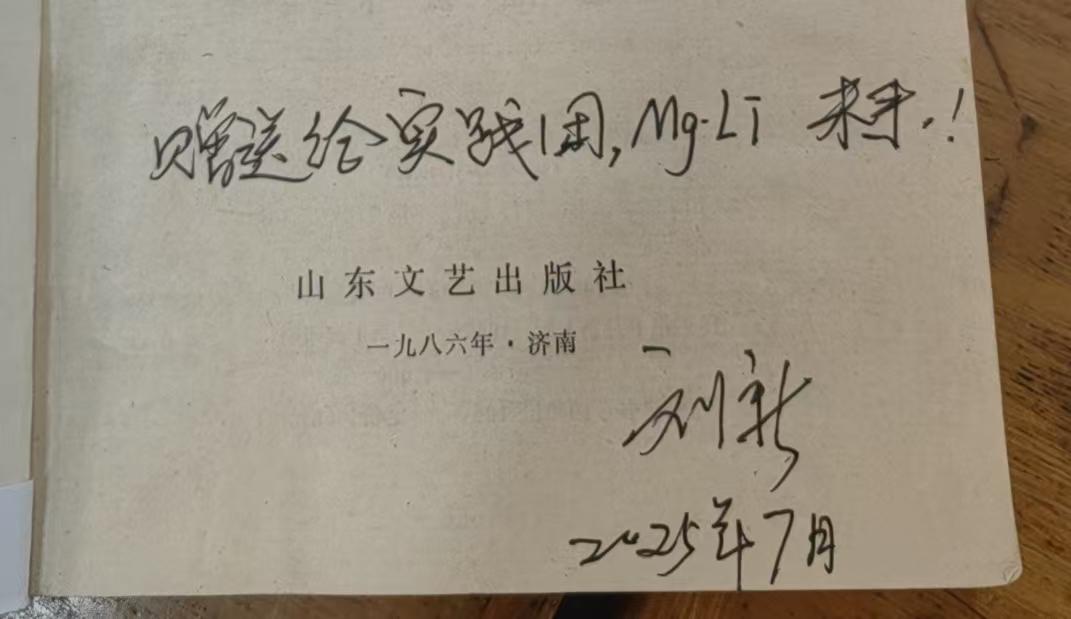 赠送给实践团, Mg-Li 未来.!
山东文艺出版社
一九八六年·济南
刘新
2025年7月